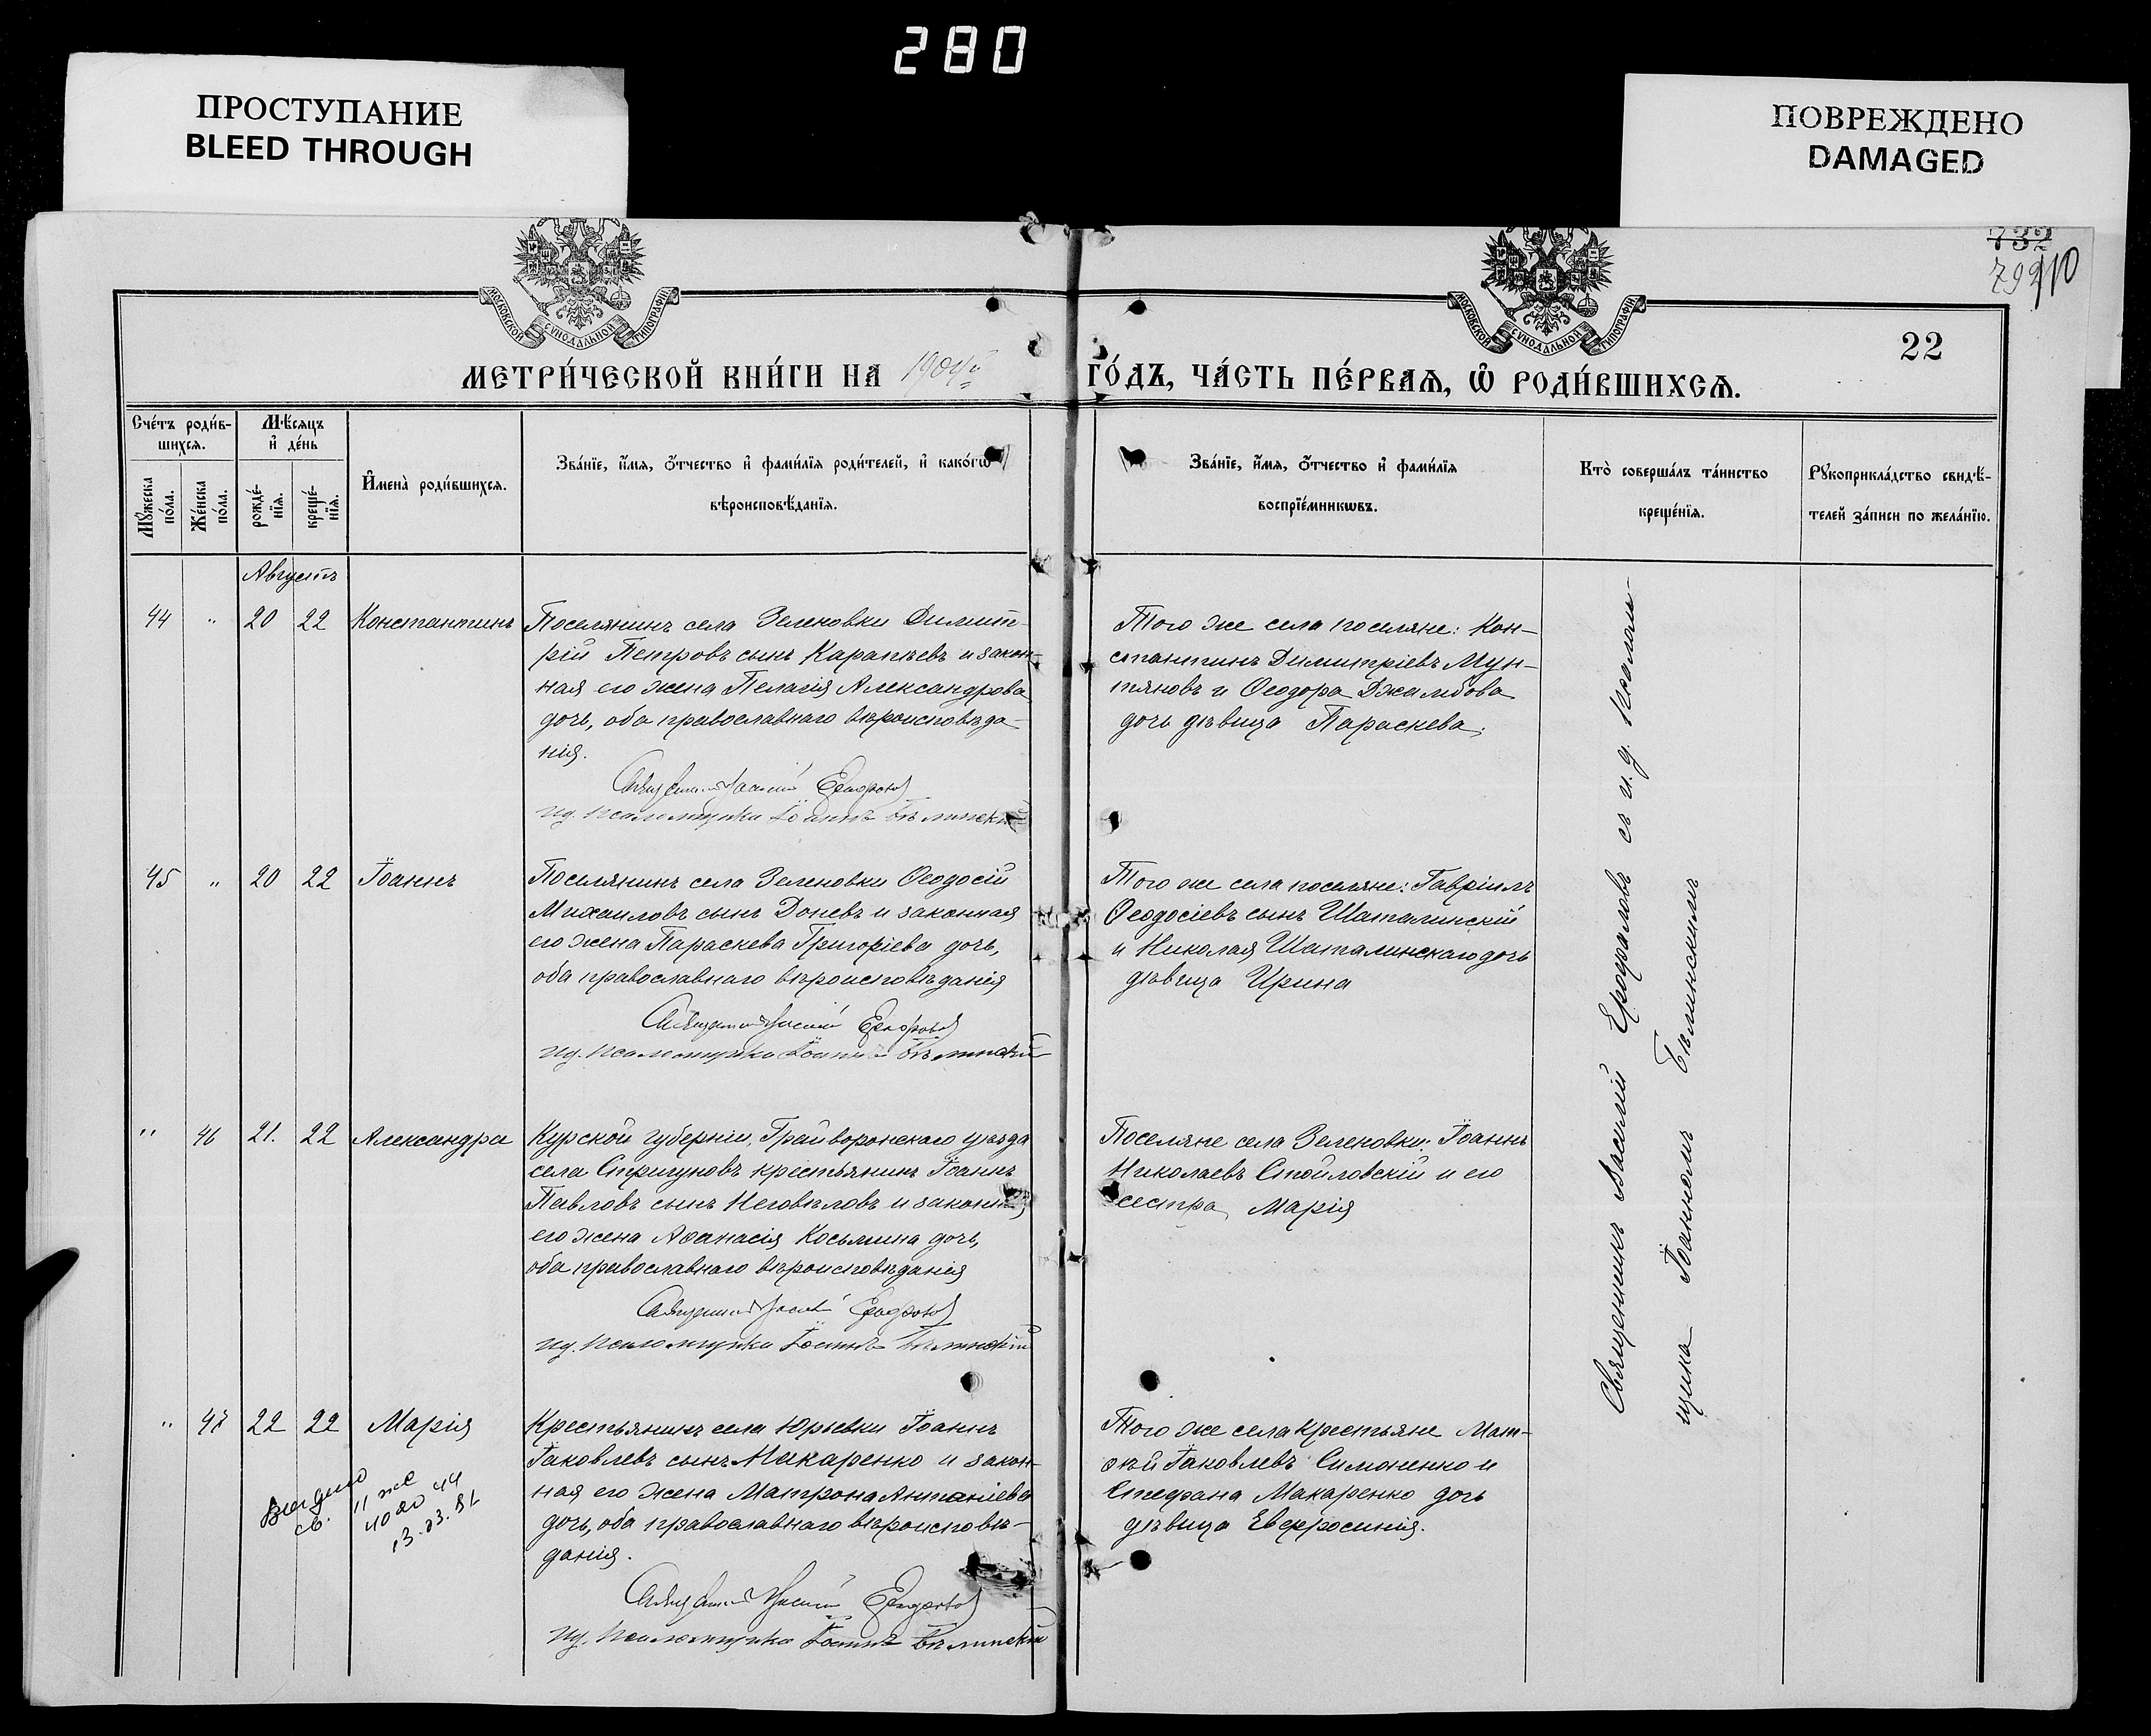 280
ПРОСТУПАНИЕ
BLEED THROUGH
ПОВРЕЖДЕНО
DAMAGED
732
22
МОСКОВСКОЙ СѴНОДАЛЬНОЙ ТИПОГРАФІИ
МОСКОВСКОЙ СѴНОДАЛЬНОЙ ТИПОГРАФІИ
МЕТРИ́ЧЕСКОЙ КНИ́ГИ НА 1904й
ГО́ДЪ, ЧА́СТЬ ПЕ́РВАѦ, Ѡ҆ РОДИ́ВШИХСѦ.
Сче́тъ роди́в-
шихсѧ.
Мѣ́сѧцъ
и҆ де́нь
Мꙋ́жеска
по́ла.
Же́нска
по́ла.
рожде́-
нїѧ.
креще́-
нїѧ.
И҆мена̀ роди́вшихсѧ.
Зва́нїе, и҆́мѧ, ѻ҆́тчество и҆ фами́лїѧ роди́телей, и҆ како́гѡ
вѣроисповѣ́данїѧ.
Зва́нїе, и҆́мѧ, ѻ҆́тчество и҆ фами́лїѧ
воспрїе́мникѡвъ.
Кто̀ соверша́лъ та́инство
креще́нїѧ.
Рꙋкоприкла́дство свидѣ́-
телей за́писи по жела́нїю.
Августъ
44 " 20 22 Константинъ
Поселянинъ села Зеленовки Димит-
рій Петровъ сынъ Карапѣевъ и закон-
ная его жена Пелагія Александрова
дочь, оба православнаго вѣроисповѣда-
нія.
Священникъ Василій Ерофаловъ
ид. псаломщика Іоаннъ Бѣлинскій
Того же села поселяне: Кон-
стантинъ Димитріевъ Мун-
тяновъ и Ѳеодора Джамбова
дочь дѣвица Параскева.
45 " 20 22 Іоаннъ
Поселянинъ села Зеленовки Ѳеодосій
Михаиловъ сынъ Доневъ и законная
его жена Параскева Григоріева дочь,
оба православнаго вѣроисповѣданія
Священникъ Василій Ерофаловъ
ид. псаломщика Іоаннъ Бѣлинскій
Того же села поселяне: Гавріилъ
Ѳеодосіевъ сынъ Шаталинскій
и Николая Шаталинскаго дочь
дѣвица Ирина
" 46 21. 22 Александра
Курской губерніи, Грайворонскаго уѣзда
села Стригуновъ крестьянинъ Іоаннъ
Павловъ сынъ Неговѣловъ и законная
его жена Аѳанасія Косьмина дочь,
оба православнаго вѣроисповѣданія
Священникъ Василій Ерофаловъ
ид. псаломщика Іоаннъ Бѣлинскій
Поселяне села Зеленовки: Іоаннъ
Николаевъ Стойловскій и его
сестра Марія
" 47 22 22 Марія
Крестьянинъ села Юрьевки Іоаннъ
Іаковлевъ сынъ Макаренко и закон-
ная его жена Матрона Антоніева
дочь, оба православнаго вѣроисповѣ-
данія.
Священникъ Василій Ерофаловъ
ид. псаломщика Іоаннъ Бѣлинскій
Того же села крестьяне Мат-
ѳей Іаковлевъ Симоненко и
Стефана Макаренко дочь
дѣвица Евфросинія.
Выдано
св. 11
Священникъ Василій Ерофаловъ съ и. д. псалом-
щика Іоанномъ Бѣлинскимъ